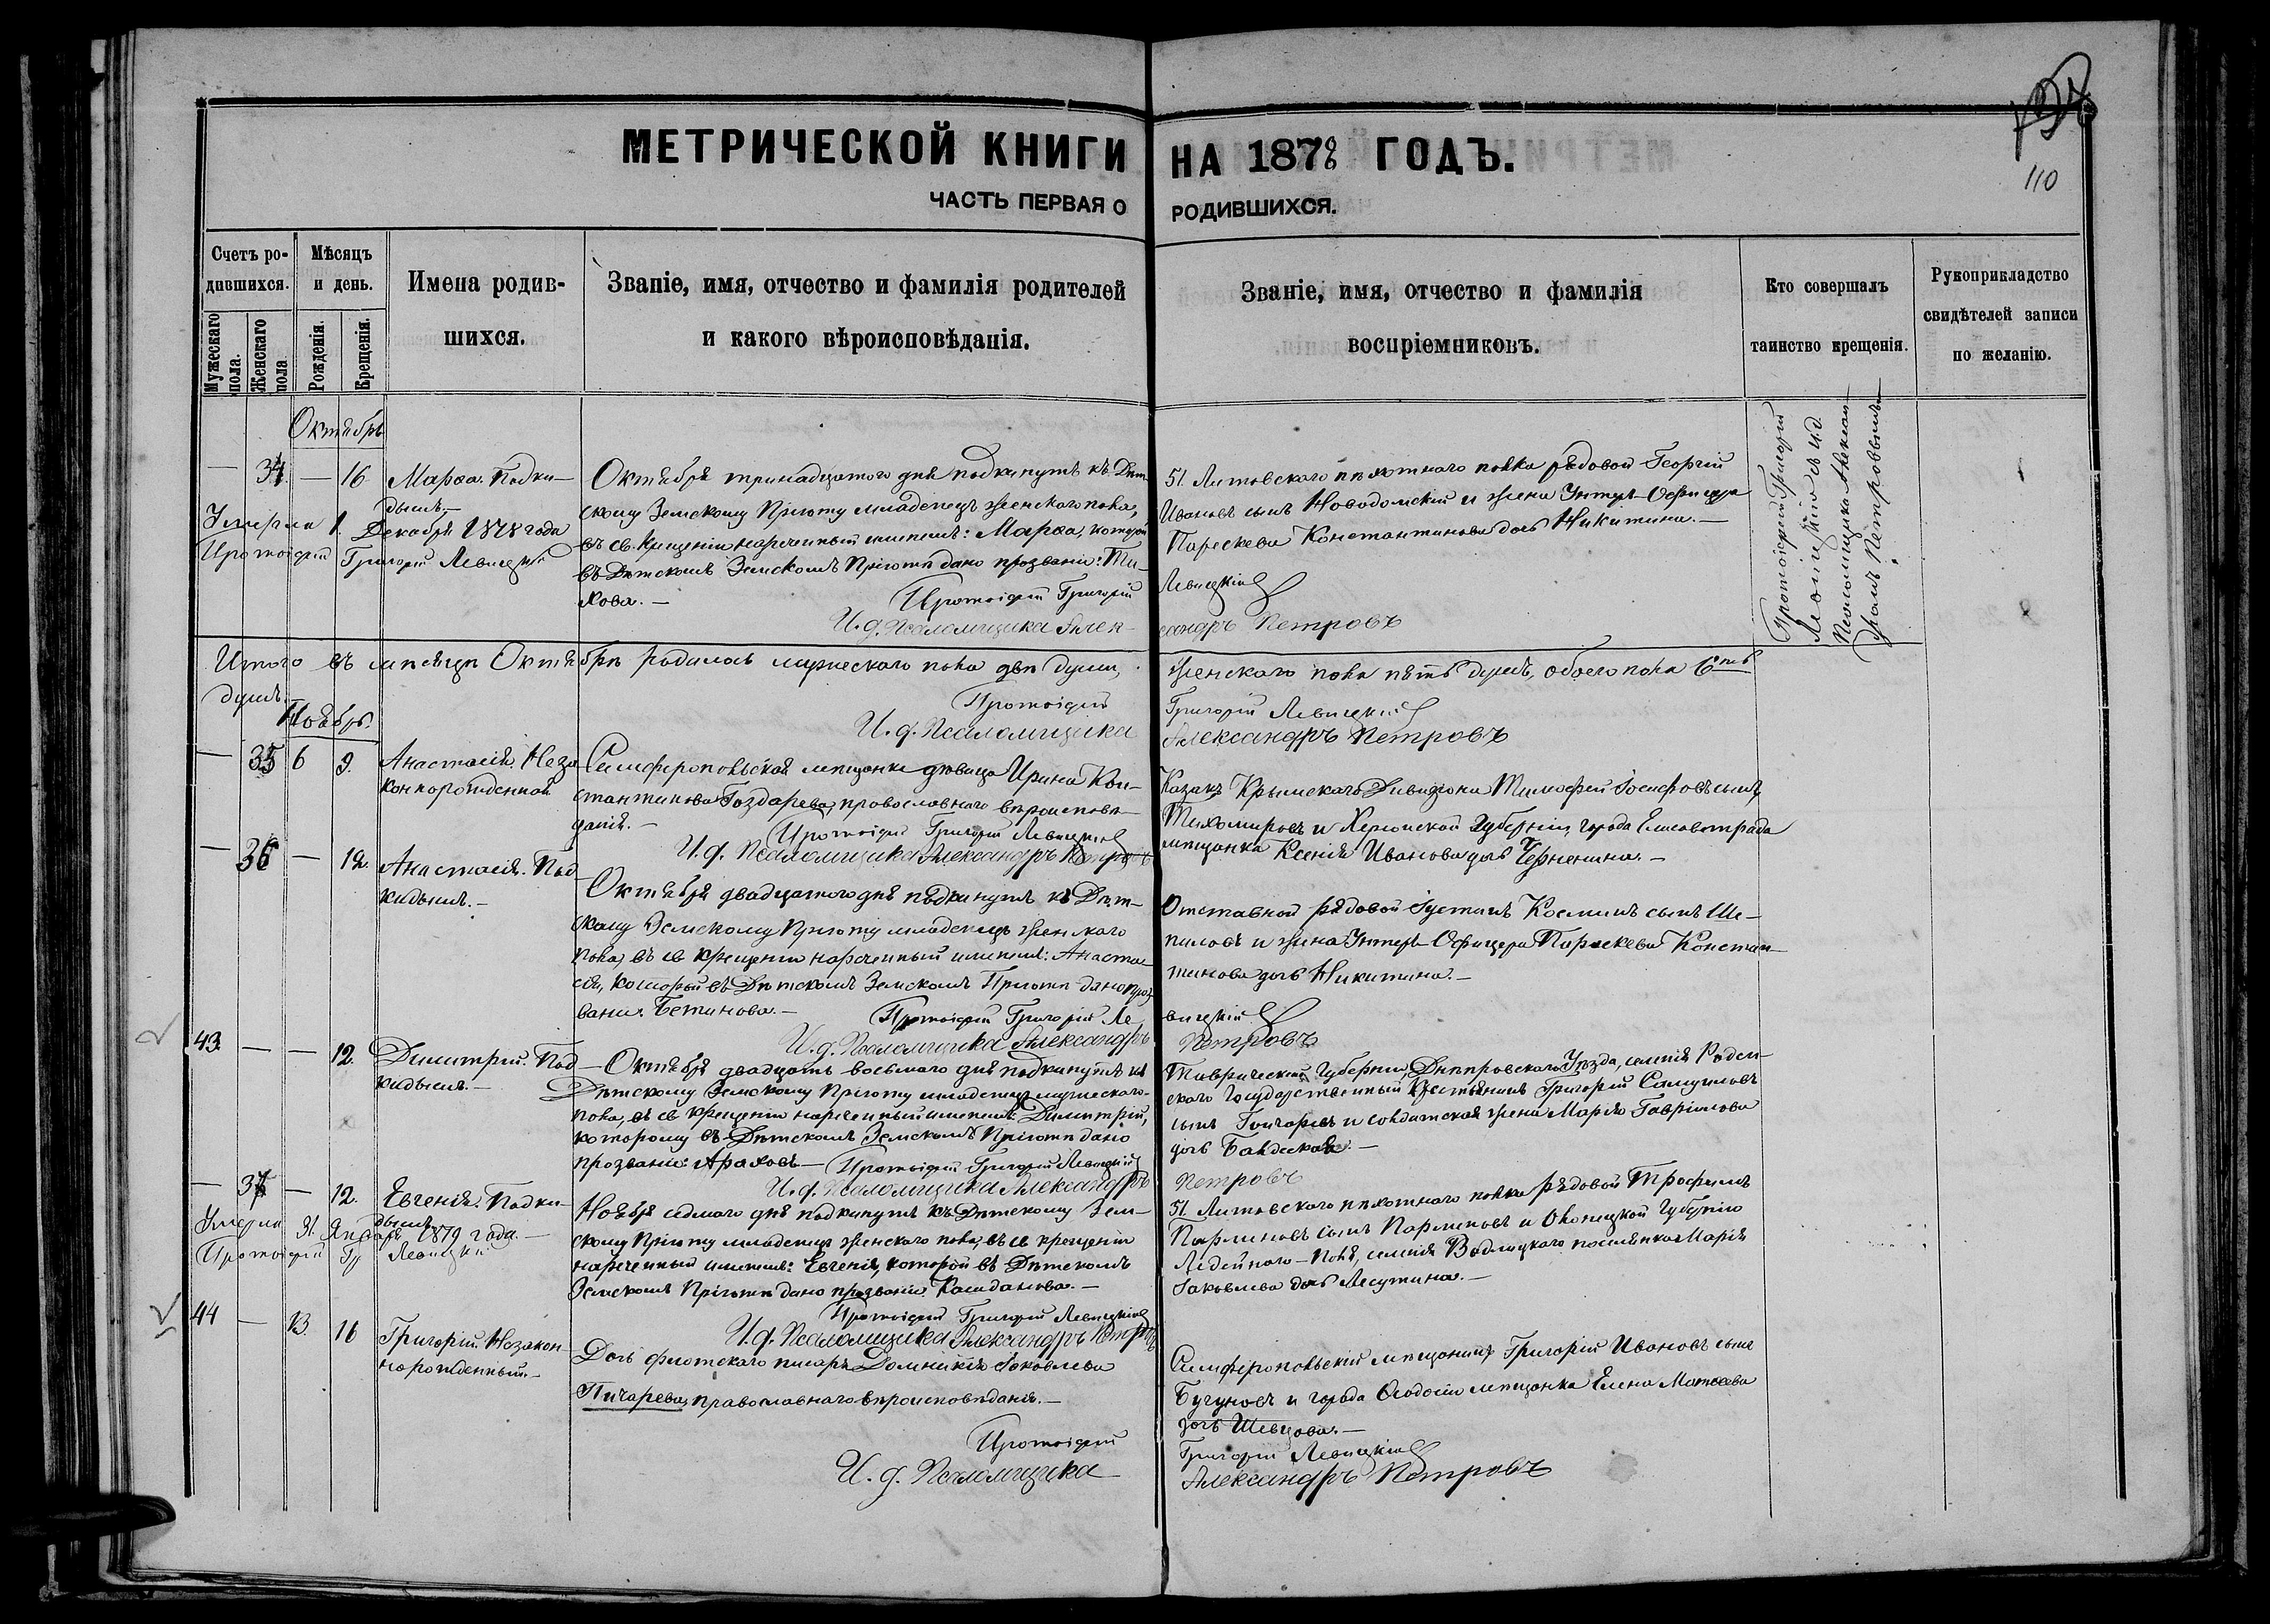 МЕТРИЧЕСКОЙ КНИГИ НА 1878 ГОДЪ.
ЧАСТЬ ПЕРВАЯ О РОДИВШИХСЯ.
110
Счетъ ро-
дившихся.
Мужескаго пола.
Женскаго пола
Мѣсяцъ
и день.
Рожденія.
Крещенія.
Имена родив-
шихся.
Званіе, имя, отчество и фамилія родителей
и какого вѣроисповѣданія.
Званіе, имя, отчество и фамилія
воспріемниковъ.
Кто совершалъ
таинство крещенія.
Рукоприкладство
свидѣтелей записи
по желанію.
Октябрь
— 34. — 16 Марѳа. Подки-
дышъ.—
Умерла 1. Декабря 1878 года
Протоіерей Григорій Левицкій
Октября тринадцатого дня подкинутъ къ Дѣт-
скому Земскому Пріюту младенецъ женскаго пола,
въ св. крещеніи нареченный именемъ: Марѳа, которой
въ Дѣтскомъ Земскомъ Пріютѣ дано прозваніе: Ти-
хова.—
Протоіерей Григорій Левицкій
И. д. Псаломщика Александръ Петровъ
51. Литовскаго пѣхотнаго полка рядовой Георгій
Ивановъ сынъ Новодомскій и жена Унтеръ-Офицера
Параскева Константинова дочь Никитина.—
Протоіерей Григорій
Левицкій и и. д.
Псаломщика Алексан-
дромъ Петровымъ.
Итого въ мѣсяцѣ Октябрѣ родилось мужескаго пола двѣ души, женскаго пола пять душъ, обоего пола
душъ.
Протоіерей Григорій Левицкій
И. д. Псаломщика Александръ Петровъ
Ноябрь.
— 35 6 9. Анастасія. Неза-
коннорожденная
Симферопольская мѣщанка дѣвица Ирина Кон-
стантинова Гоздарева, православнаго вѣроисповѣ-
данія.—
Протоіерей Григорій Левицкій
И. д. Псаломщика Александръ Петровъ
Казакъ Крымскаго Дивизіона Тимофей Іосифовъ сынъ
Тихомировъ и Херсонской Губерніи города Елисаветграда
мѣщанка Ксенія Ивановна дочь
— 36 — 12. Анастасія. Под-
кидышъ.—
Октября двадцатого дня подкинутъ къ Дѣт-
скому Земскому Пріюту младенецъ женскаго
пола, въ св. крещеніи нареченный именемъ: Анаста-
сія, которой въ Дѣтскомъ Земскомъ Пріютѣ дано проз-
ваніе: Бетинова.—
Протоіерей Григорій Левицкій
И. д. Псаломщика Александръ Петровъ
Отставной рядовой Іустинъ Косминъ сынъ Ше-
пиловъ и жена Унтеръ-Офицера Параскева Констан-
тинова дочь Никитина.—
43. — — 12. Димитрій. Под-
кидышъ.—
Октября двадцать восьмаго дня подкинутъ къ
Дѣтскому Земскому Пріюту младенецъ мужескаго
пола, въ св. крещеніи нареченный именемъ: Димитрій,
которому въ Дѣтскомъ Земскомъ Пріютѣ дано
прозваніе: Араховъ.— Протоіерей Григорій Левицкій
И. д. Псаломщика Александръ Петровъ
Таврической Губерніи, Днѣпровскаго Уѣзда, селенія
скаго Государственный Крестьянинъ Григорій Самуиловъ
сынъ Гончаровъ и солдатская жена Марія Гаврилова
дочь
— 37 — 12. Евгенія. Подки-
дышъ.
Умерла 31. Января 1879 года.—
Протоіерей Гр Левицкій
Ноября седмаго дня подкинутъ къ Дѣтскому Зем-
скому Пріюту младенецъ женскаго пола, въ св. крещеніи
нареченный именемъ: Евгенія, которой въ Дѣтскомъ
Земскомъ Пріютѣ дано прозваніе: Кашданова.—
Протоіерей Григорій Левицкій
И. д. Псаломщика Александръ Петровъ
51. Литовскаго пѣхотнаго полка рядовой Трофимъ
Парменовъ сынъ Парменовъ и Олонецкой Губерніи
Лодейнаго-Поля, селенія поселянка Марія
Іаковлева дочь Лесутина.—
44 — 13. 16 Григорій. Незакон-
норожденный.—
Дочь флотскаго писаря Домникія Іаковлева
Пичарева, православнаго вѣроисповѣданія.—
Протоіерей Григорій Левицкій
И. д. Псаломщика Александръ Петровъ
Симферопольскій мѣщанинъ Григорій Ивановъ сынъ
Бугуновъ и города Ѳеодосіи мѣщанка Елена Матѳеева
дочь Шевцова.—